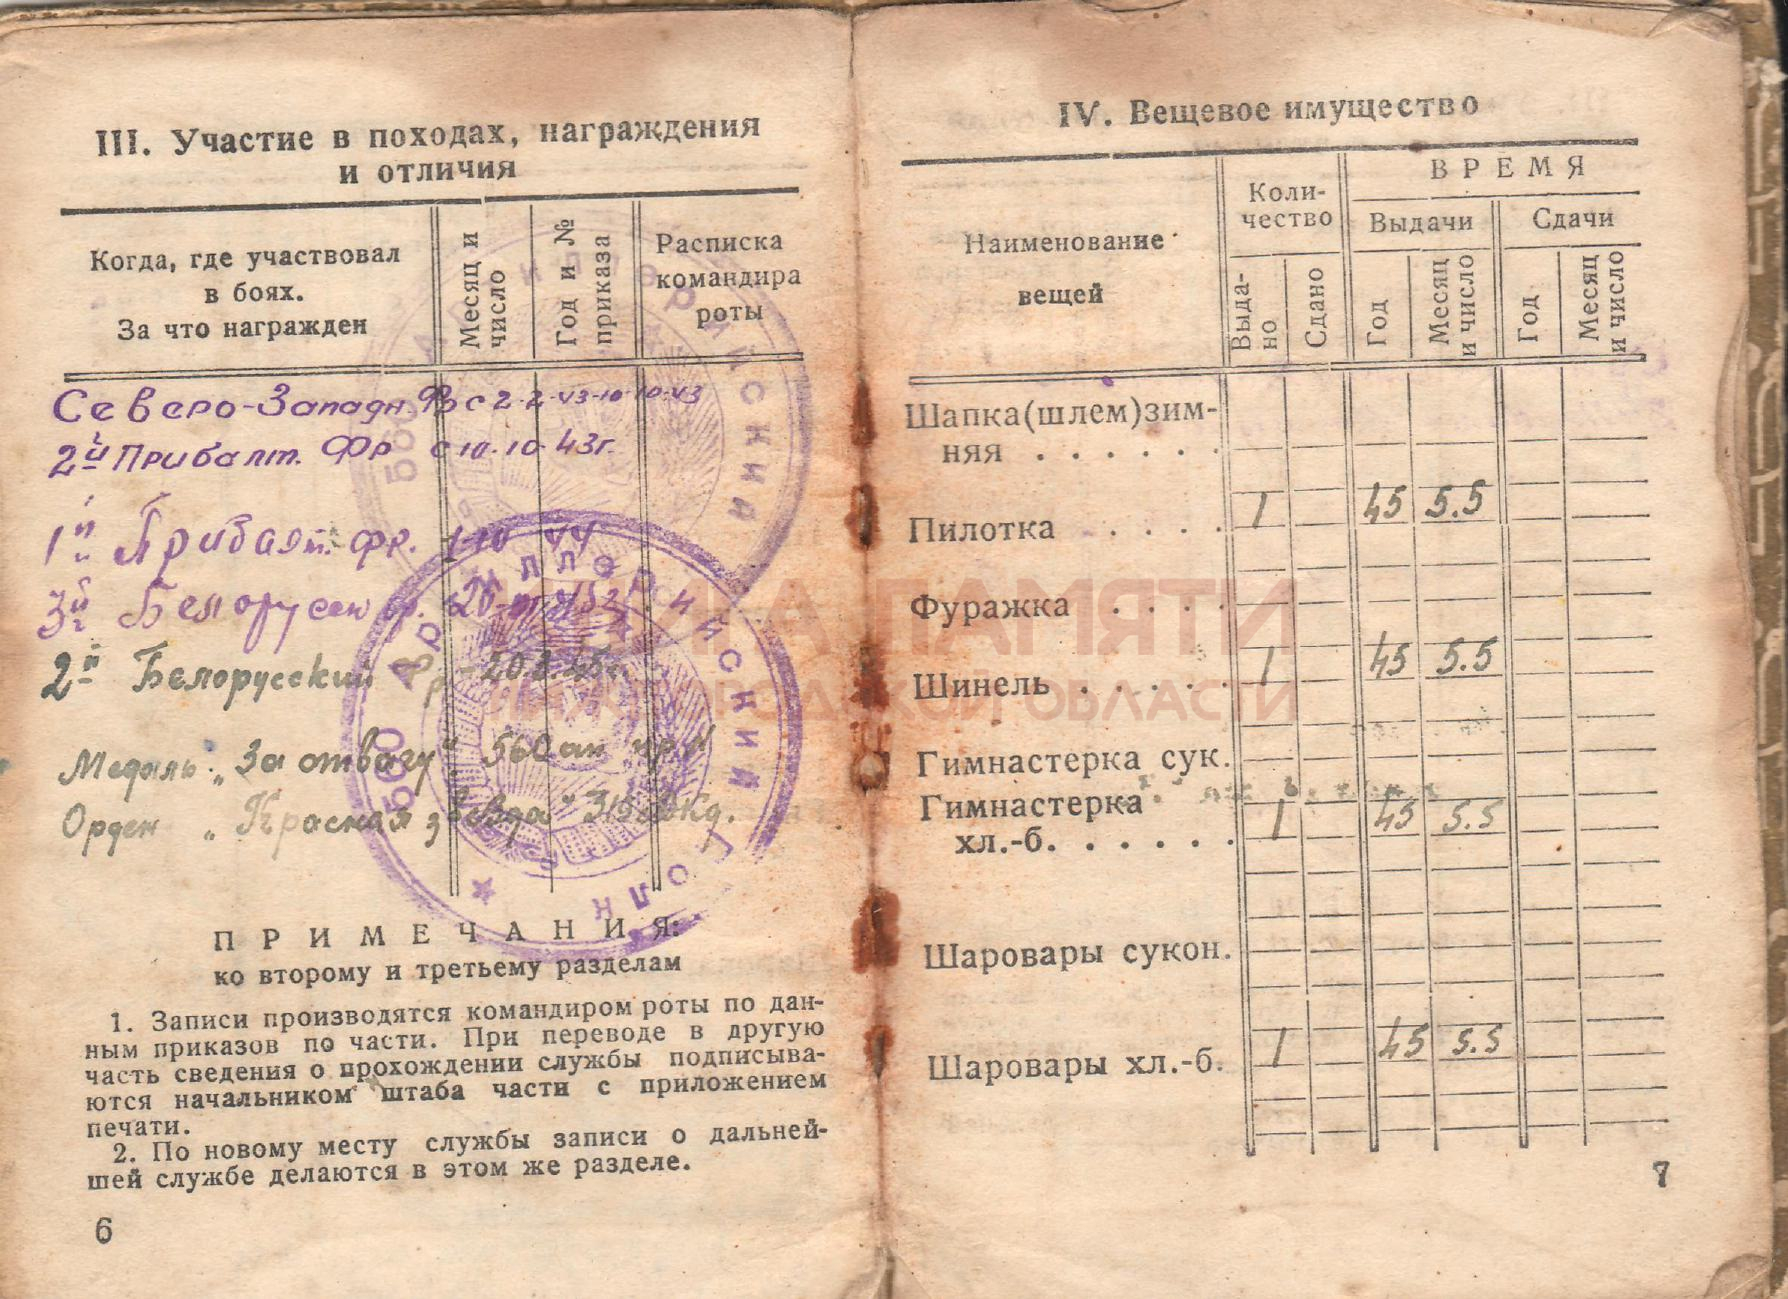 III. Участие в походах, награждения
и отличия
Когда, где участвовал
в боях.
За что награжден
Месяц и
число
Год и №
приказа
Расписка
командира
роты
Северо-Западн. Ф с 2-2-43-10-10-43
2й Прибалт. Фр с 10-10-43г.
1й Прибалт. фр. 1-10 44
3й Белорусск фр.
2й Белорусский фр - 20.2.45г.
Медаль „За отвагу“ 560 ап пр.
Орден „Красная звезда“ 315
560 Артиллерийский Полк
П Р И М Е Ч А Н И Я:
ко второму и третьему разделам
1. Записи производятся командиром роты по дан-
ным приказов по части. При переводе в другую
часть сведения о прохождении службы подписыва-
ются начальником штаба части с приложением
печати.
2. По новому месту службы записи о дальней-
шей службе делаются в этом же разделе.
6
IV. Вещевое имущество
Наименование
вещей
Коли-
чество
В Р Е М Я
Выдачи
Сдачи
Выда-
но
Сдано
Год
Месяц
и число
Год
Месяц
и число
Шапка(шлем)зим-
няя . . . . . .
Пилотка . . . . 1 45 5.5
Фуражка . . . .
Шинель . . . . . 1 45 5.5
Гимнастерка сук.
Гимнастерка
хл.-б. . . . . . . 1 45 5.5
Шаровары сукон.
Шаровары хл.-б. 1 45 5.5
7
КНИГА ПАМЯТИ
НИЖЕГОРОДСКОЙ ОБЛАСТИ